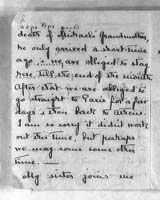 death of Michael's Grandmother,
he only arrived a short time
ago. ∴ we are obliged to stay
here till the end of the month
After that we are obliged to
go straight to Paris for a few
days & then back to
I am so sorry it didn't work
out this time, but perhaps
we may come some other
time. —
My sister joins me